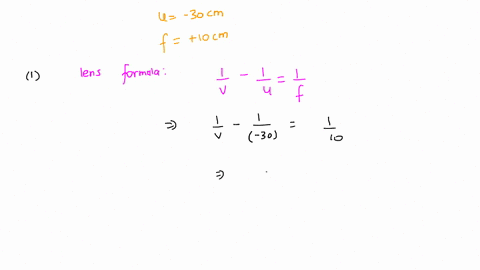 u = -30 cm
f = +10 cm
(1) lens formula: 1/v - 1/u = 1/f
⇒ 1/v - 1/(-30) = 1/10
⇒